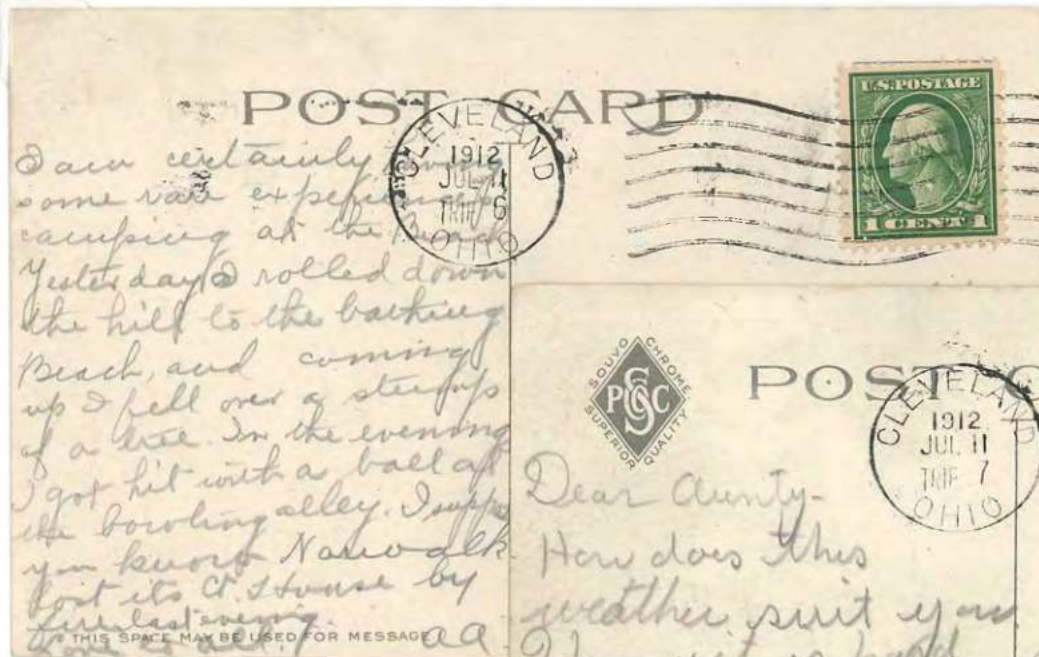 POST CARD
CLEVELAND
1912
JUL 11
TRIP 6
OHIO
U.S. POSTAGE
1 CENT 1
I am certainly
some rare experiences
camping at the Beach
Yesterday I rolled down
the hill to the bathing
Beach, and coming
up I fell over a stump
of a tree. In the evening
I got hit with a ball at
the bowling alley. I suppose
you know Norwalk
lost its Ct. House by
fire last evening.
Love to all.
aa
THIS SPACE MAY BE USED FOR MESSAGE
SOUVO CHROME
PGSC
SUPERIOR QUALITY
POST C
CLEVELAND
1912
JUL 11
TRIP 7
OHIO
Dear Aunty-
How does this
weather suit you